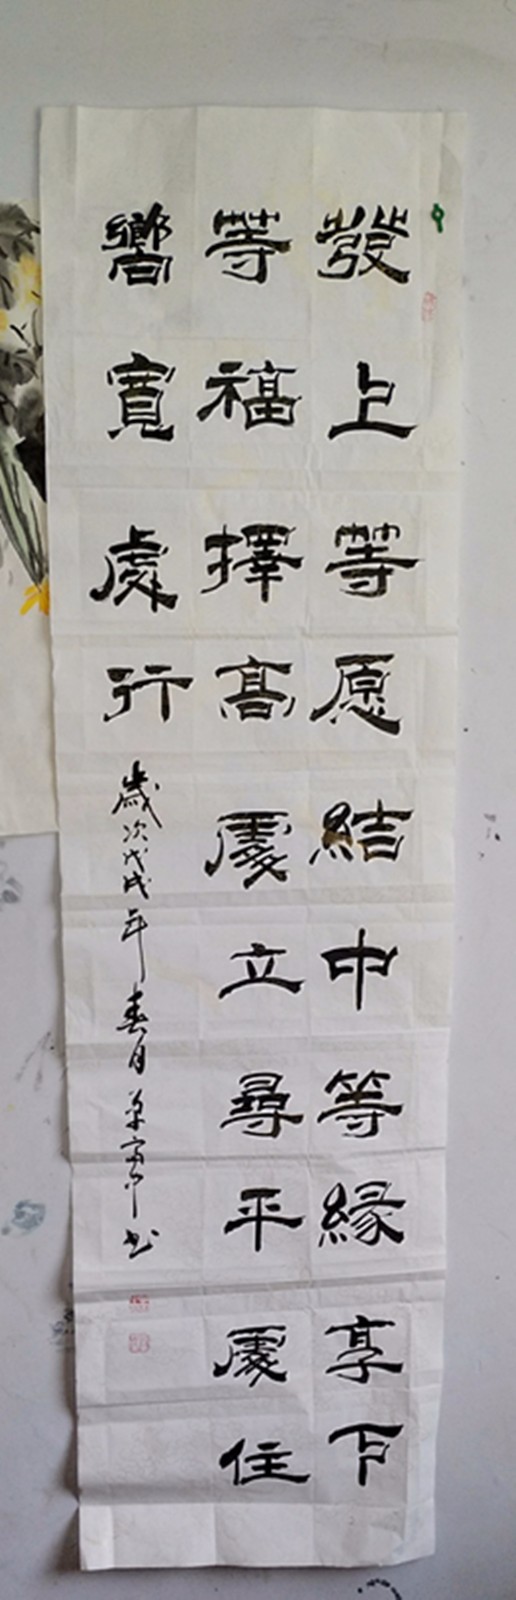 發上等愿結中等緣享下
等福擇高處立尋平處住
嚮寬處行
歲次戊戌年春月 書